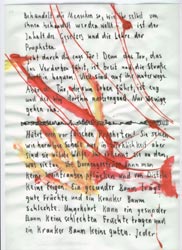 Behandelt die Menschen so, wie ihr selbst von
ihnen behandelt werden wollt, das ist der
Inhalt des Gesetzes und die Lehre der
Propheten
Geht durch die enge Tür! Denn das Tor, das
ins Verderben führt, ist breit und die Straße
bequem. Viele sind auf ihr unterwegs.
Aber die Tür, die zum Leben führt, ist eng
und der Weg dorthin anstrengend. Nur wenige
gehen ihn.
Hütet euch vor falschen Sie sehen
wie harmlose Schafe aus, in Wirklichkeit aber
sind sie wilde Wölfe.
Von Dornengestrüpp kann man
keine Weintrauben pflücken und von Disteln
keine Feigen. Ein gesunder Baum trägt
gute Früchte und ein kranker Baum
schlechte. Umgekehrt kann ein gesunder
Baum keine schlechten Früchte tragen und
ein kranker Baum keine guten. Jeder